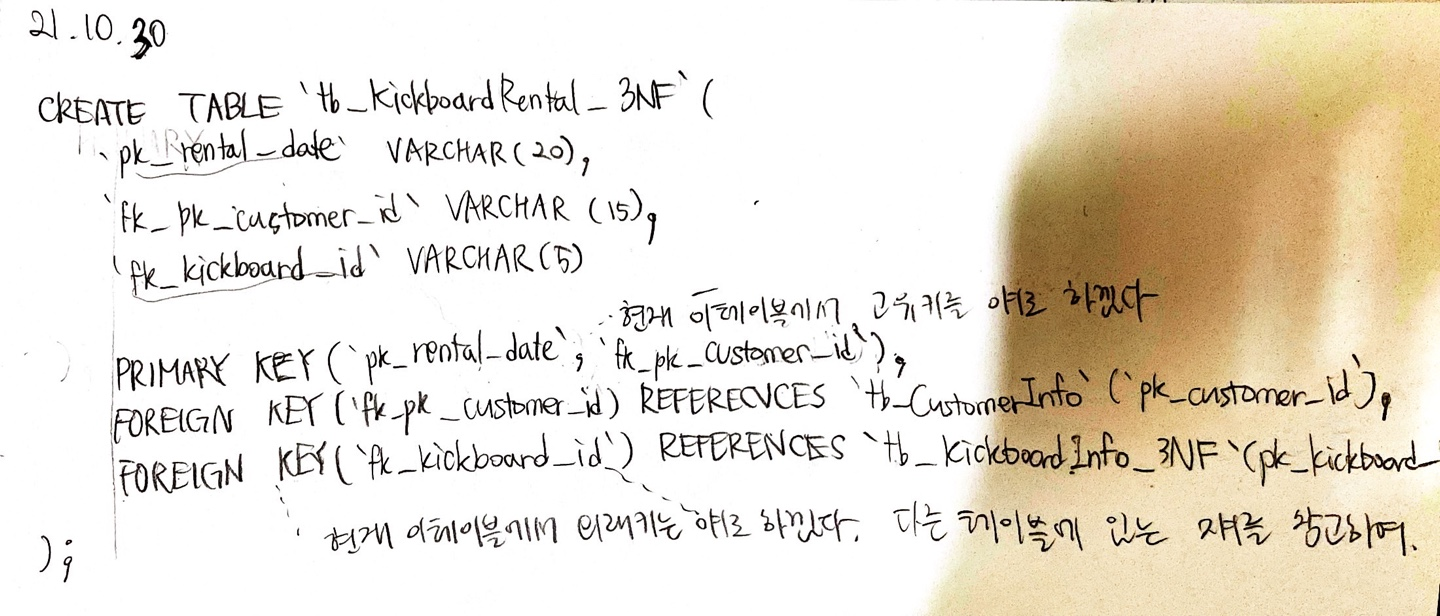 21.10.30
CREATE TABLE `tb_KickboardRental_3NF` (
`pk_rental_date` VARCHAR(20),
`fk_pk_customer_id` VARCHAR (15),
`fk_kickboard_id` VARCHAR(5)
현재 이테이블에서 고유키를 야로 하겠다
PRIMARY KEY(`pk_rental_date`, `fk_pk_customer_id`),
FOREIGN KEY(`fk_pk_customer_id) REFERECVCES `tb_CustomerInfo` (`pk_customer_id`),
FOREIGN KEY(`fk_kickboard_id`) REFERENCES `tb_KickboardInfo_3NF`(pk_kickboard_
현재 이테이블에서 외래키는 야로 하겠다. 다른 테이블에 있는 쟤를 참고하여.
);